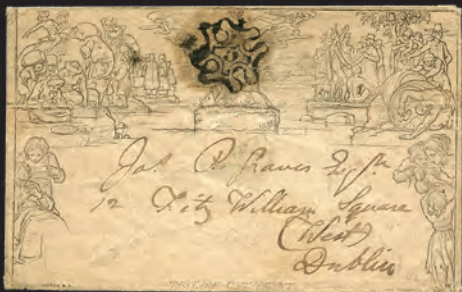 Jas. R. Graves Esqre
12 Fitz William Square
(West)
Dublin
POSTAGE ONE PENNY